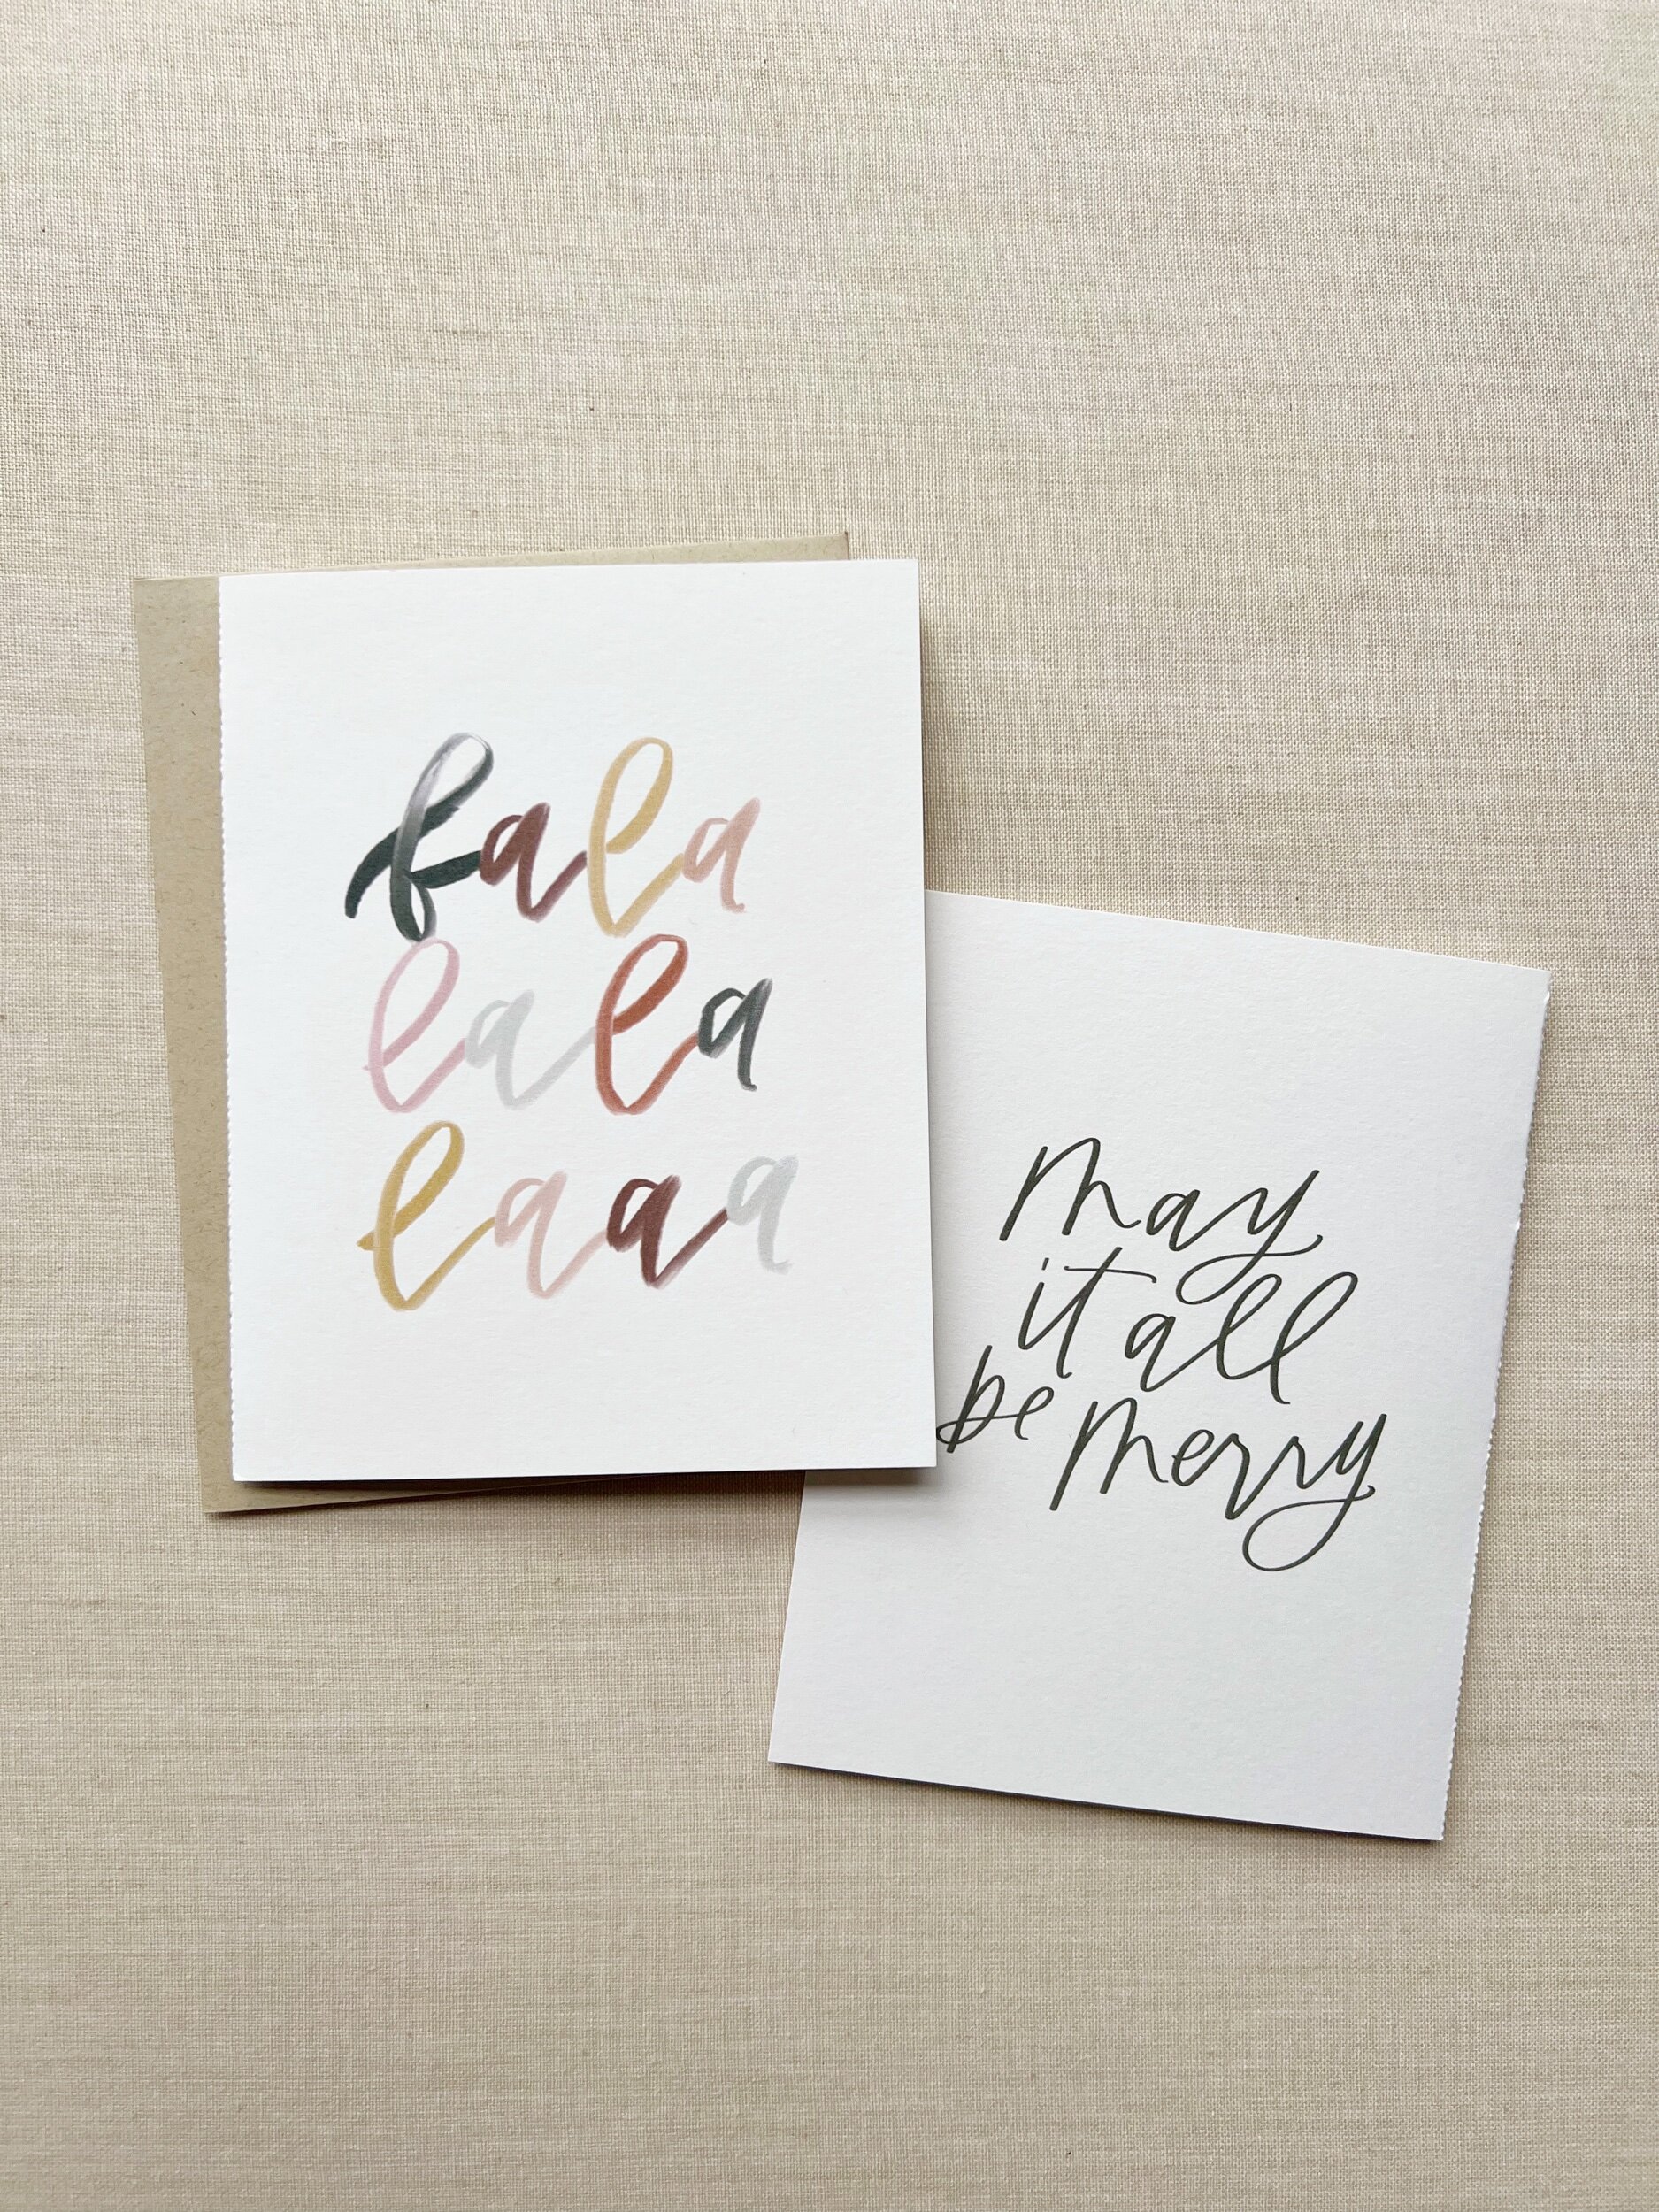 fala
lala
laaa
may
it all
be merry